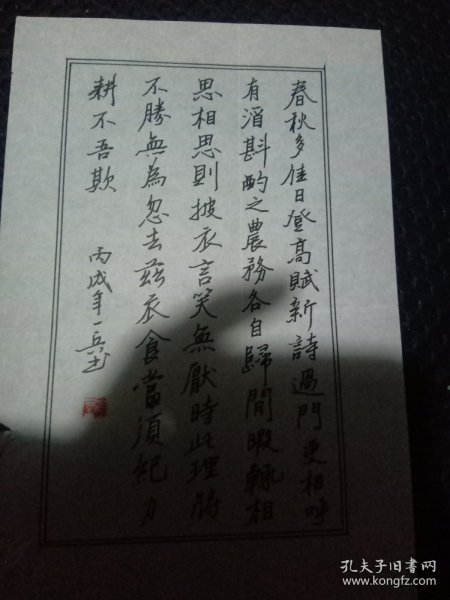 春秋多佳日登高賦新詩過門更相呼
有酒斟酌之農務各自歸閒暇輒相
思相思則披衣言笑無厭時此理將
不勝無為忽去兹衣食當須紀力
耕不吾欺
丙戌年一兵书
孔夫子旧书网
www.kongfz.com